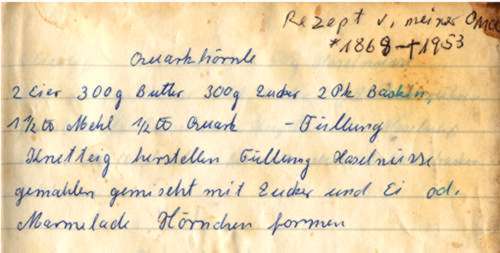 Rezept v. meiner Oma
*1868 +1953
Quarkhörnle
2 Eier 300g Butter 300g Zucker 2 Pk Backin
1 1/2 ℔ Mehl 1/2 ℔ Quark - Füllung
Knetteig herstellen Füllung Haselnüsse
gemahlen gemischt mit Zucker und Ei od.
Marmelade Hörnchen formen